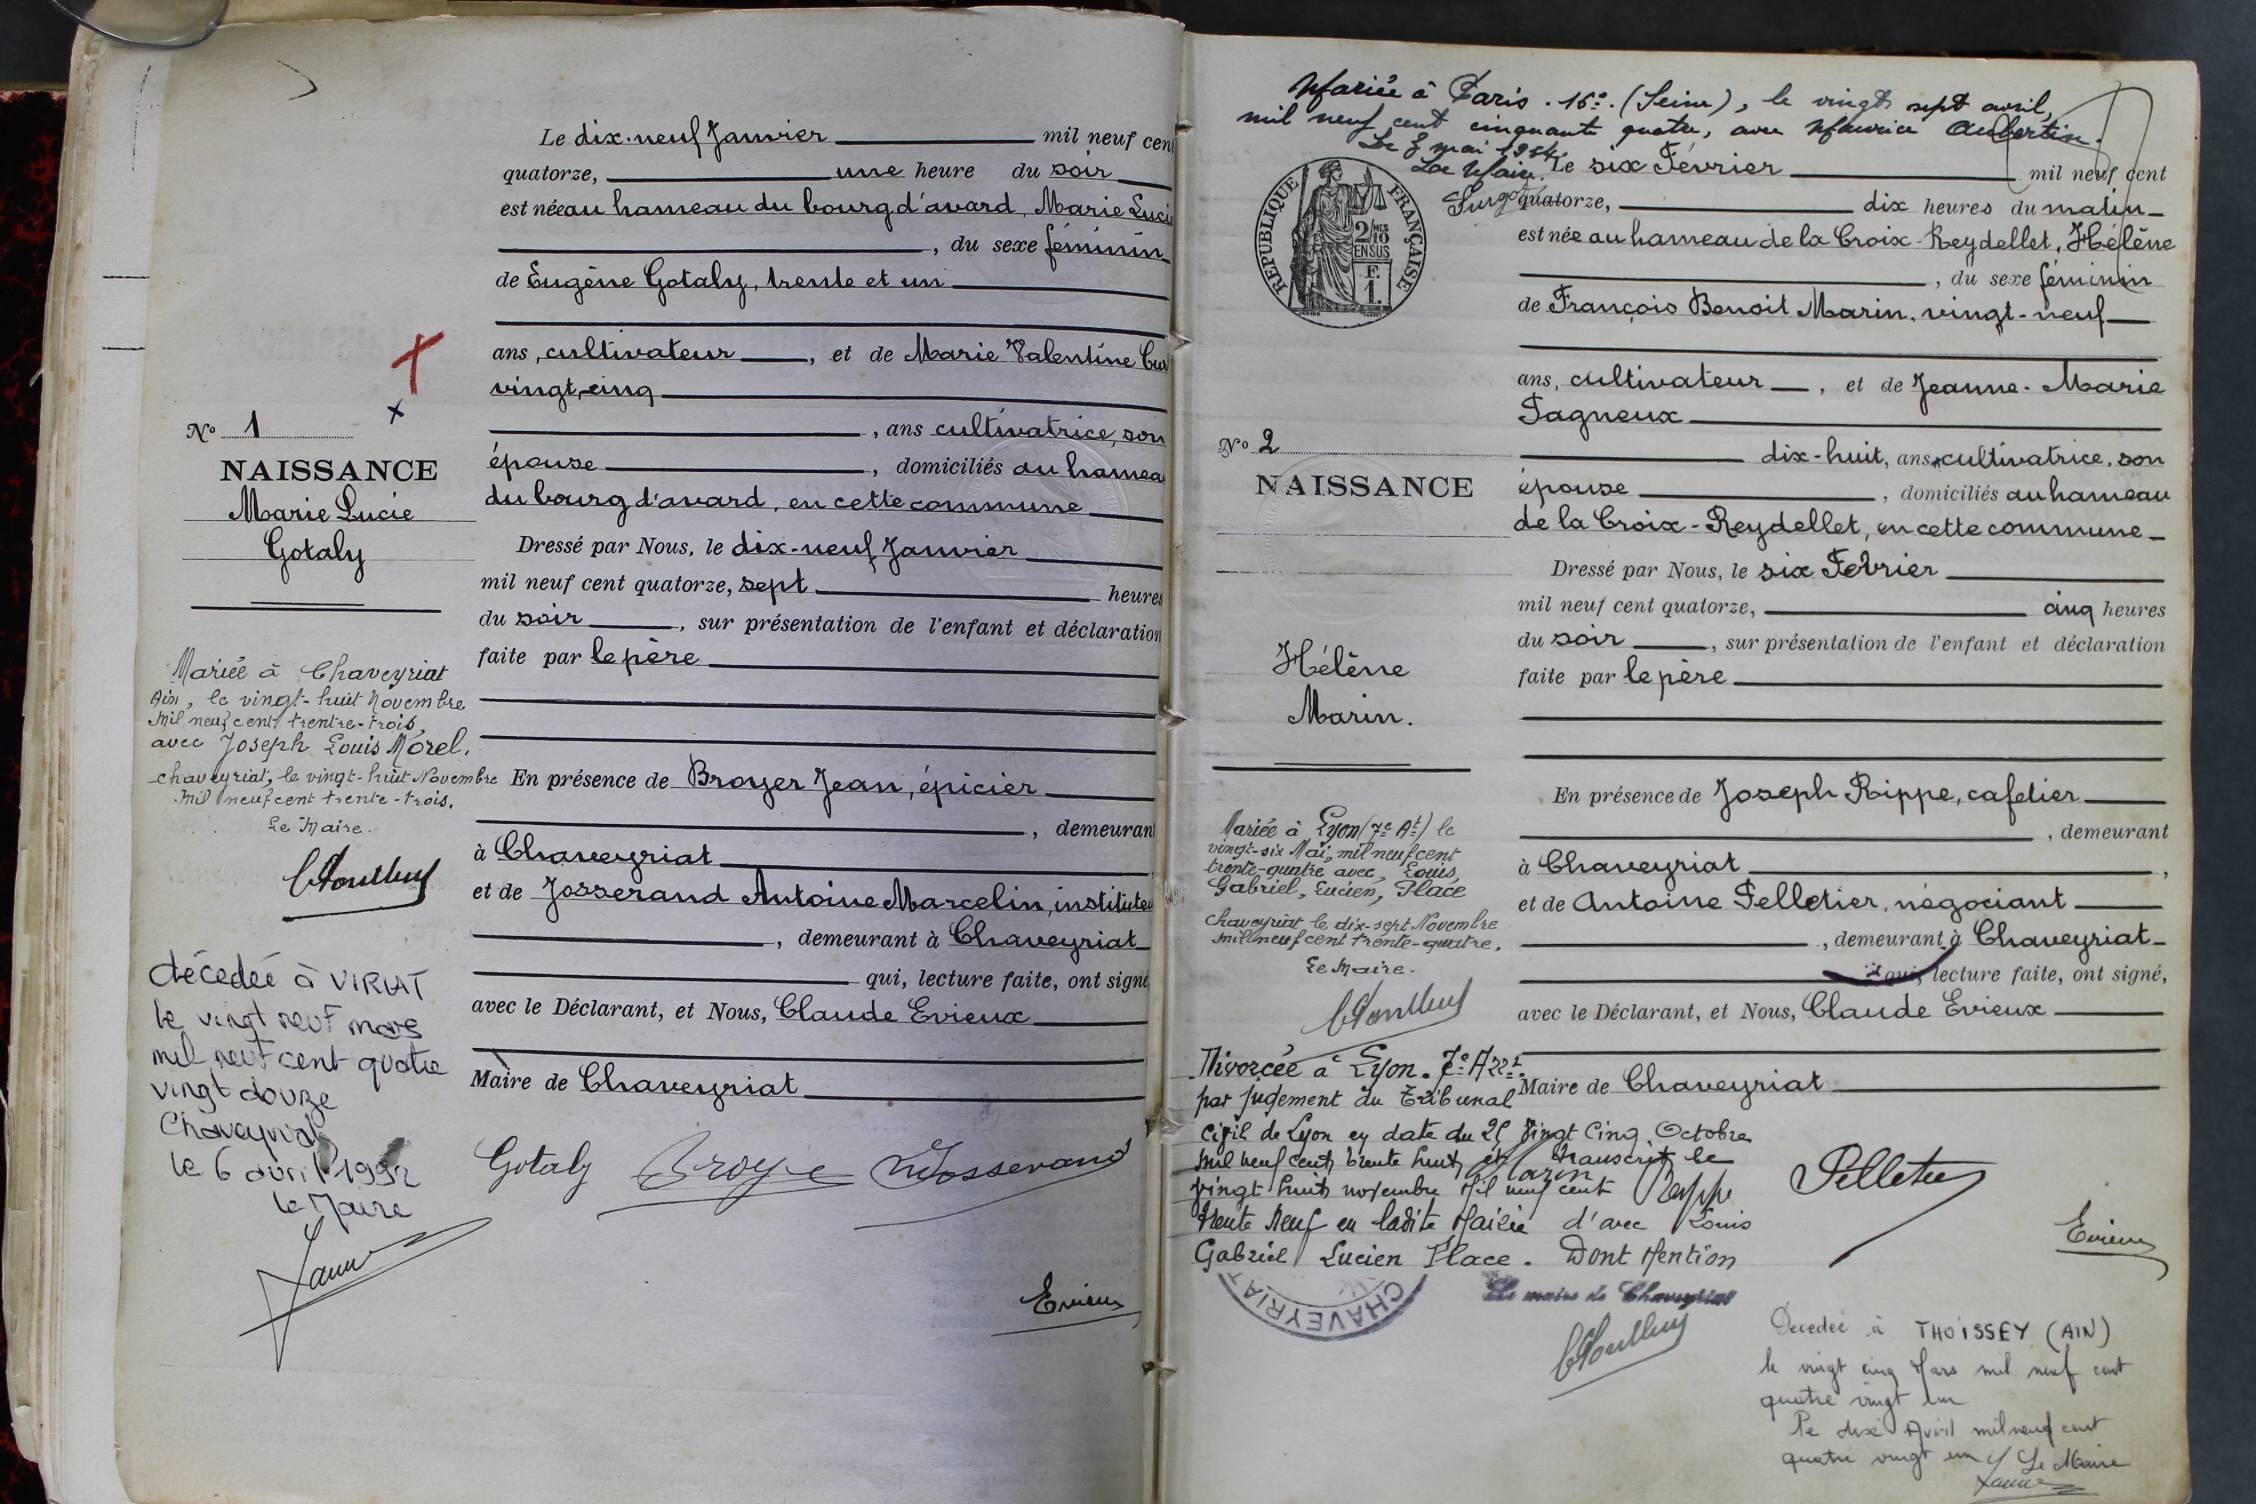 Le dix-neuf Janvier mil neuf cen
quatorze, une heure du soir
est née au hameau du bourg d'avard, Marie Lucie
, du sexe féminin
de Eugène Gotaly, trente et un
ans, cultivateur, et de Marie Valentine
vingt-cinq
, ans cultivatrice, son
épouse, domiciliés au hamea
du bourg d'avard, en cette commune
Dressé par Nous, le dix-neuf Janvier
mil neuf cent quatorze, sept heures
du soir, sur présentation de l'enfant et déclaration
faite par le père
En présence de Broyer Jean, épicier
, demeurant
à Chaveyriat
et de Josserand Antoine Marcelin, institute
, demeurant à Chaveyriat
qui, lecture faite, ont signé
avec le Déclarant, et Nous, Claude Evieux
Maire de Chaveyriat
Gotaly Broyer Josserand
Evieux
N° 1
NAISSANCE
Marie Lucie
Gotaly
Mariée à Chaveyriat
Ain, le vingt-huit Novembre
mil neuf cent trentre-trois,
avec Joseph Louis Morel.
Chaveyriat, le vingt-huit Novembre
mil neuf cent trente-trois.
Le Maire.
décedée à VIRIAT
le vingt neuf mars
mil neuf cent quatre
vingt douze
Chaveyriat
le 6 avril 1992
le Maire
Mariée à Paris .16e. (Seine), le vingt sept avril,
mil neuf cent cinquante quatre, avec Maurice Aubertin.
Le 3 mai 1954
Le Maire.
REPUBLIQUE FRANÇAISE
2/10 MES
EN SUS
F.
1.
Le six Février mil neuf cent
quatorze, dix heures du matin
est née au hameau de la Croix-Reydellet, Hélène
, du sexe féminin
de François Benoit Marin, vingt-neuf
ans, cultivateur, et de Jeanne-Marie
Pagneux
dix-huit, ans, cultivatrice, son
épouse, domiciliés au hameau
de la Croix-Reydellet, en cette commune
Dressé par Nous, le six Février
mil neuf cent quatorze, cinq heures
du soir, sur présentation de l'enfant et déclaration
faite par le père
En présence de Joseph Rippe, cafetier
, demeurant
à Chaveyriat,
et de Antoine Pelletier, négociant
, demeurant à Chaveyriat
qui, lecture faite, ont signé,
avec le Déclarant, et Nous, Claude Evieux
Maire de Chaveyriat
Marin
Rippe
Pelletier
Evieux
N° 2
NAISSANCE
Hélène
Marin.
Mariée à Lyon (7e At) le
vingt-six Mai, mil neuf cent
trente-quatre avec, Louis,
Gabriel, Lucien, Place
Chaveyriat le dix-sept Novembre
mil neuf cent trente-quatre.
Le Maire.
Divorcée à Lyon. 7e Arrt.
par jugement du Tribunal
Civil de Lyon en date du 25 Vingt Cinq Octobre
mil neuf cent trente huit et transcrit le
vingt huit novembre mil neuf cent
trente neuf en ladite Mairie d'avec Louis
Gabriel Lucien Place. Dont Mention
Le maire de Chaveyriat
CHAVEYRIAT
Decedée à THOISSEY (AIN)
le vingt cinq Mars mil neuf cent
quatre vingt un
Le dix Avril mil neuf cent
quatre vingt un Le Maire